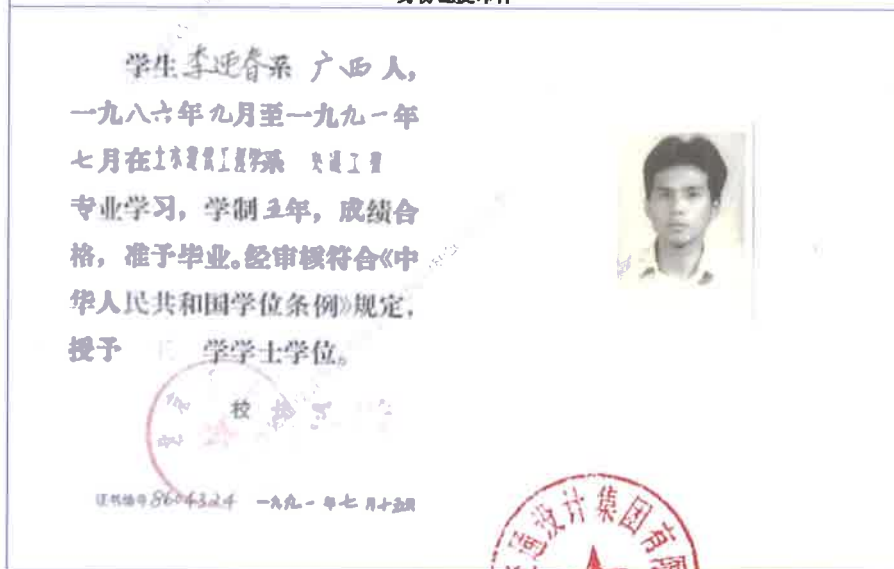 学生李迎春系 广西 人,
一九八六年九月至一九九一年
七月在土木建筑工程学系 交通工程
专业学习, 学制五年, 成绩合
格, 准予毕业。经审核符合《中
华人民共和国学位条例》规定,
授予 学学士学位。
校
证书编号8604324 一九九一年七月十五日
通设计集团有限